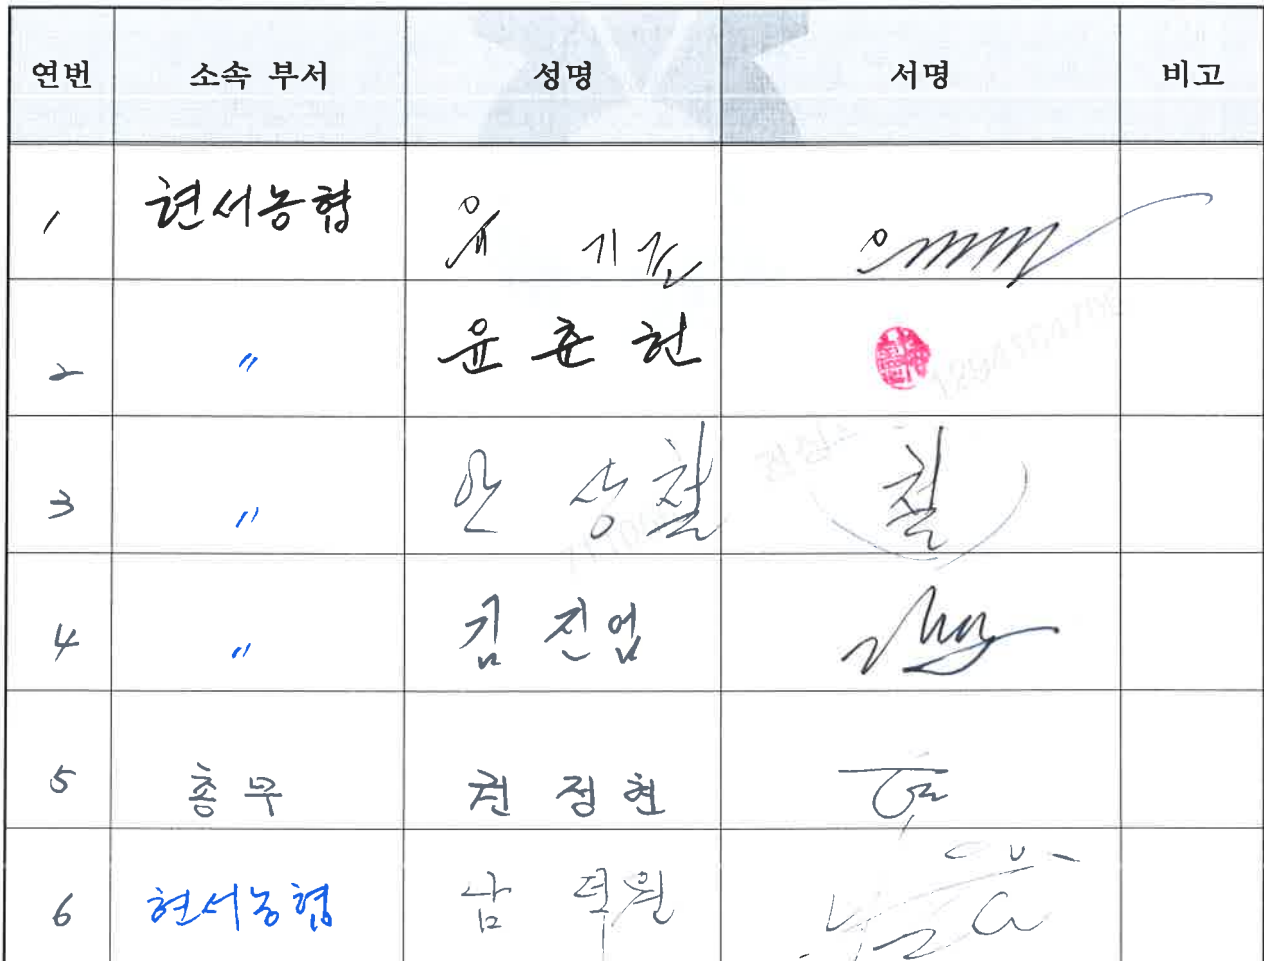 연번 소속 부서 성명 서명 비고
1 현서농협 기준
2 〃 윤춘헌
3 〃 안상철 철
4 〃 김진업
5 총무 권정현
6 현서농협 남덕원